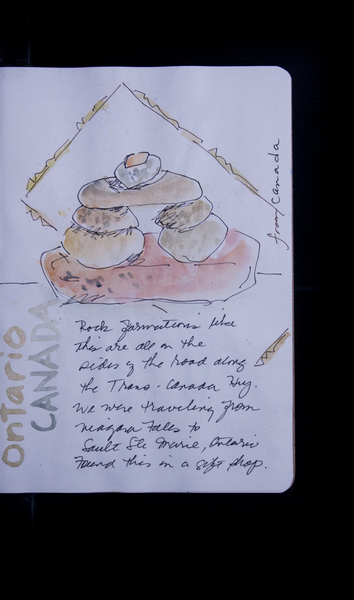 from Canada
Ontario
CANADA
Rock formations like
this are all on the
sides of the road along
the Trans-Canada Hwy.
We were traveling from
Niagara Falls to
Sault Ste Marie, Ontario
Found this in a gift shop.